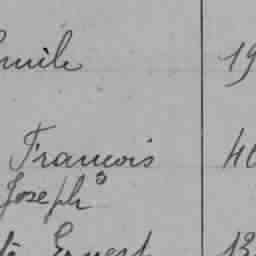 Emile 19
François 40
Joseph
Ernest 13